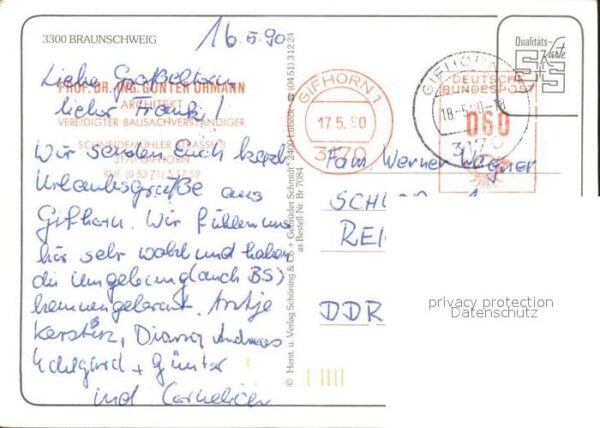 3300 BRAUNSCHWEIG
16.5.90
Liebe Großeltern
lieber Frank!
PROF. DR. ING. GÜNTER OHMANN
ARCHITEKT
VEREIDIGTER BAUSACHVERSTÄNDIGER
SCHNEIDEMÜHLER STRASSE 3
3170 GIFHORN
RUF (0 53 71) 5 17 59
Wir senden Euch herzl.
Urlaubsgrüße aus
Gifhorn. Wir fühlen uns
hier sehr wohl und haben
die Umgebung (auch BS)
kennengelernt. Antje
Kerstin, Diana, Andreas
+ Günter
und Cornelia
© Herst. u. Verlag Schöning & Co + Gebrüder Schmidt · 2400 Lübeck · ☎ (04 51) 3 12 24
as Bestell-Nr. Br 7084
GIFHORN 1
17.5.90
3170
GIFHORN
18-5.90-18
3170
DEUTSCHE
BUNDESPOST
060
Qualitäts-
Karte
Fam. Werner Wagner
DDR
privacy protection
Datenschutz